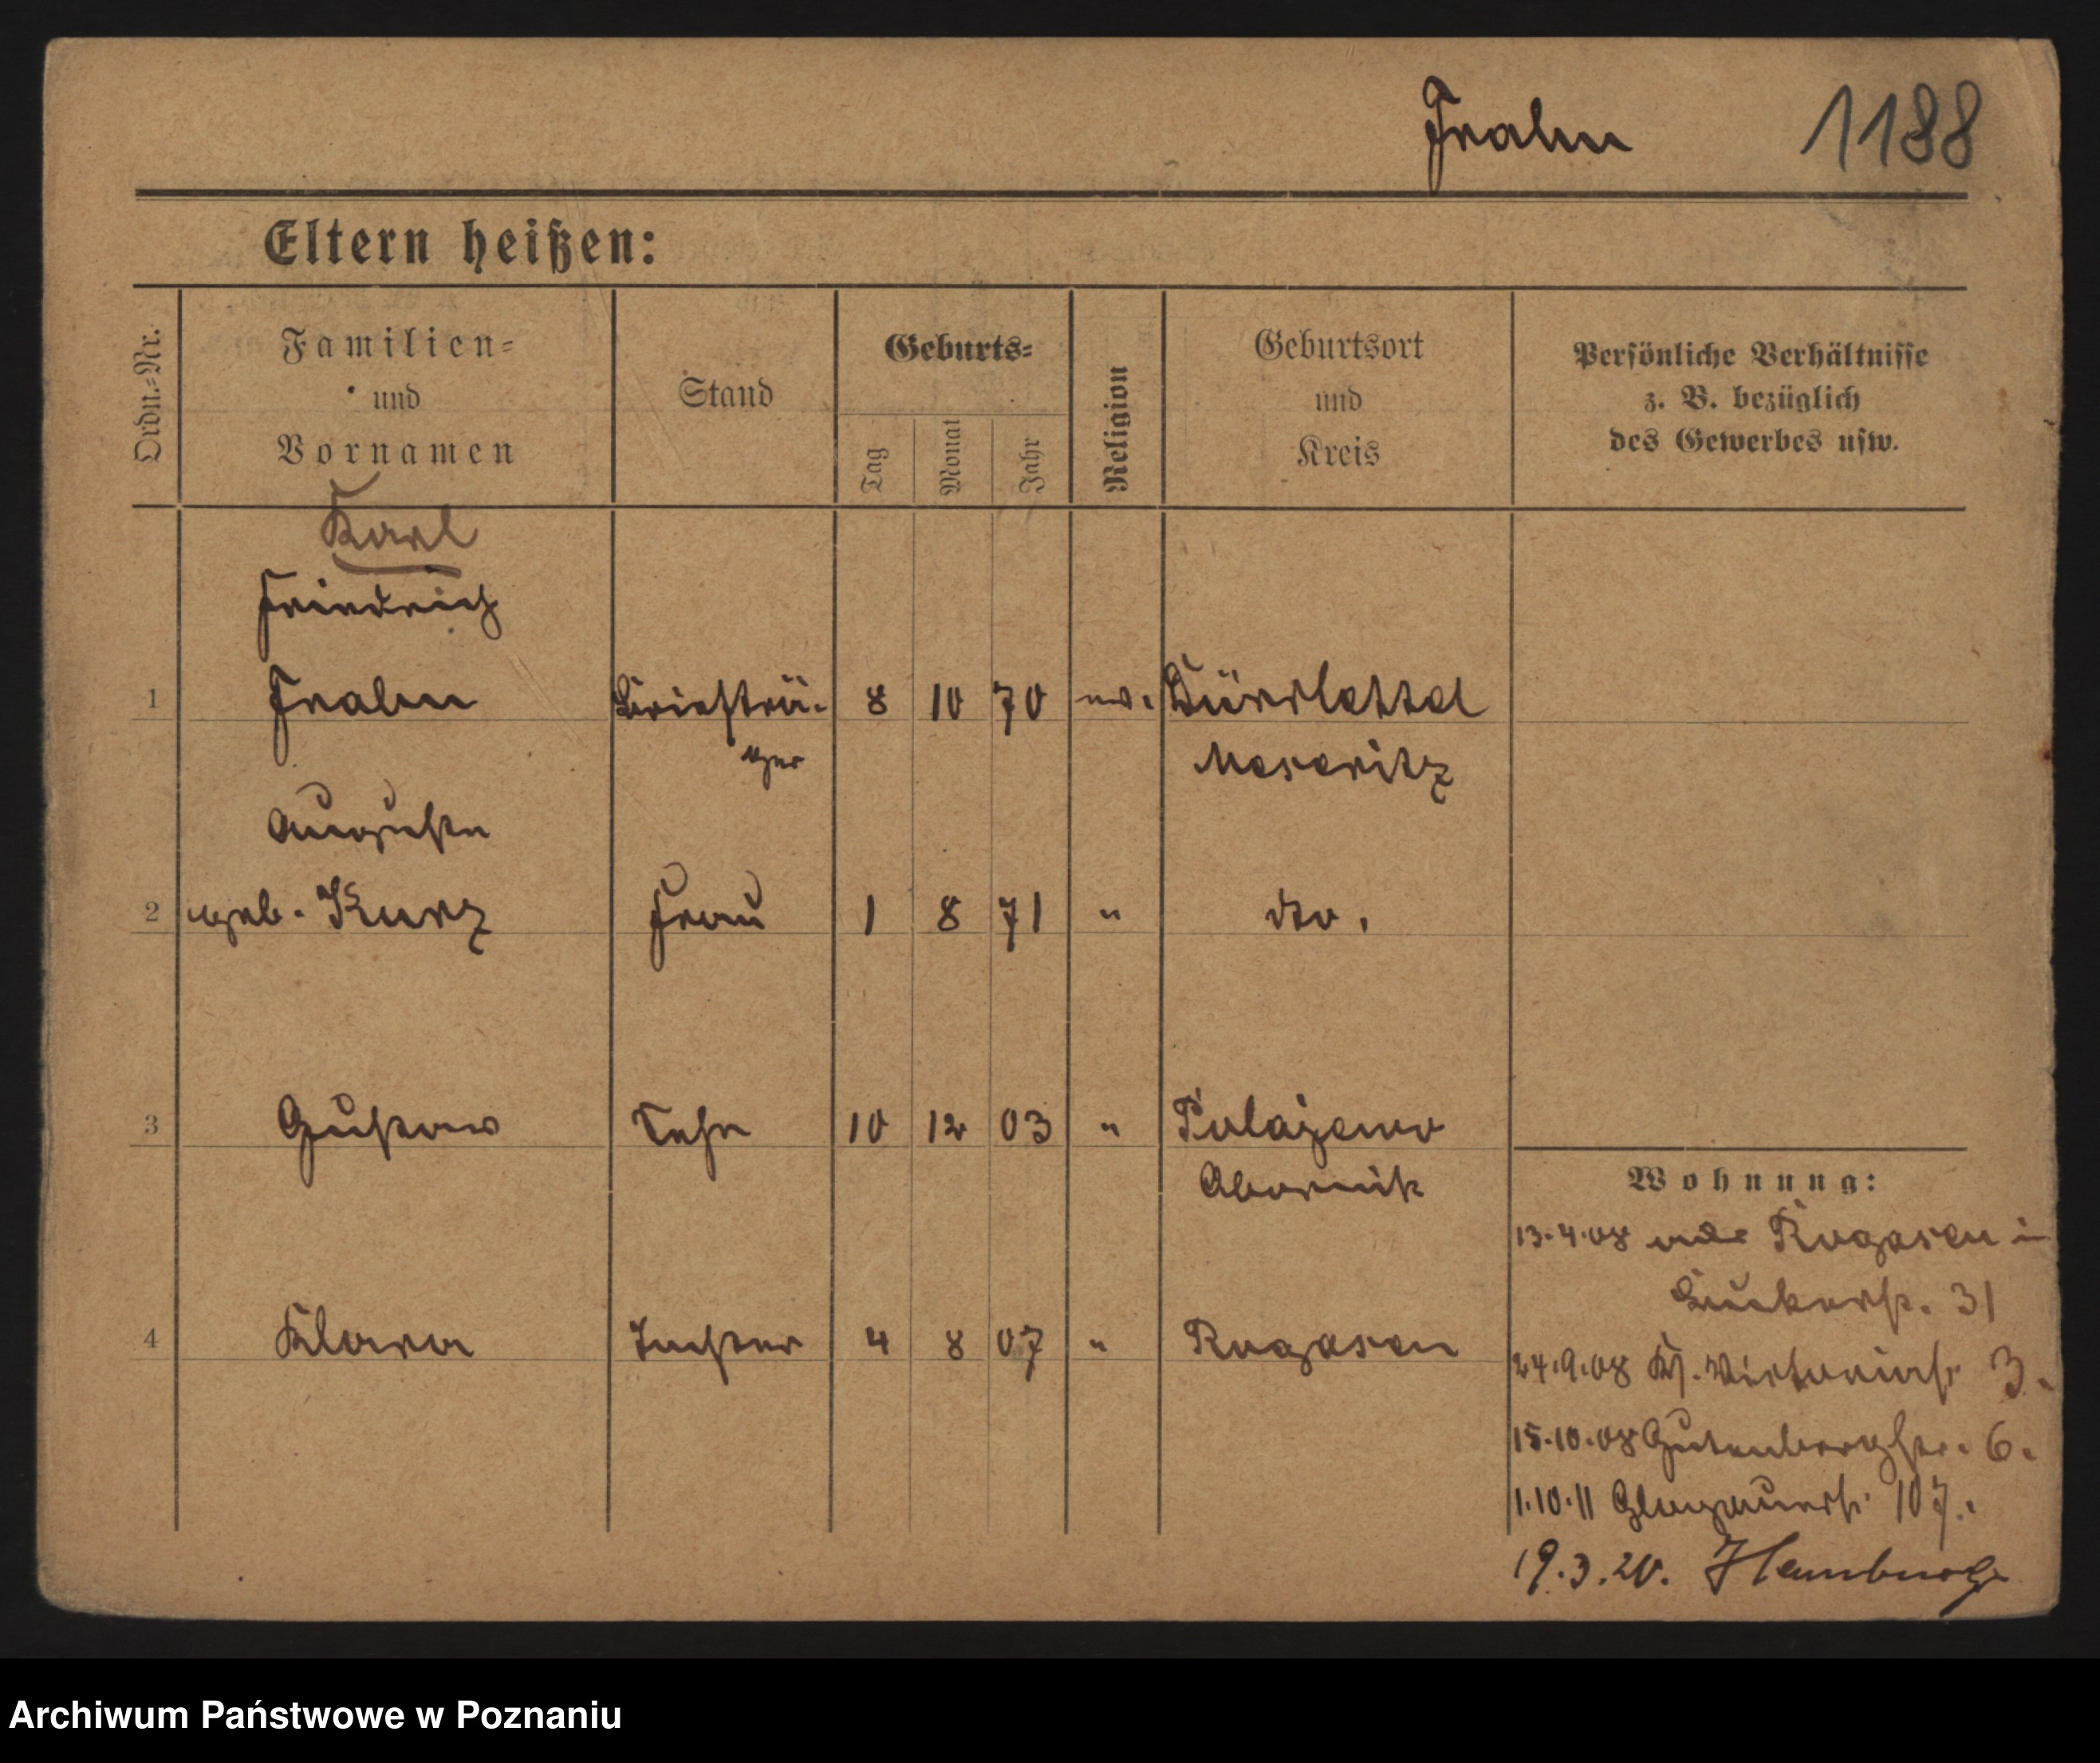 Frahm 1188
Eltern heißen:
Ordn.=Nr.
Familien=
und
Vornamen
Stand
Geburts=
Tag
Monat
Jahr
Religion
Geburtsort
und
Kreis
Persönliche Verhältnisse
z. B. bezüglich
des Gewerbes usw.
Karl
Friedrich
1 Frahm Briefträ- 8 10 70 ev. Dürrlettel
ger Meseritz
Auguste
2 geb. Kurz Frau 1 8 71 " dto.
3 Gustav Sohn 10 12 03 " Polajewo
Obornik
4 Klara Tochter 4 8 07 " Rogasen
Wohnung:
13.4.08 Rogasen
Bukerstr. 31
24.9.08 Kl. Viktoriastr 3.
15.10.08 Gutenbergstr. 6.
1.10.11 Glogauerstr 107.
19.3.20. Hamburg
Archiwum Państwowe w Poznaniu